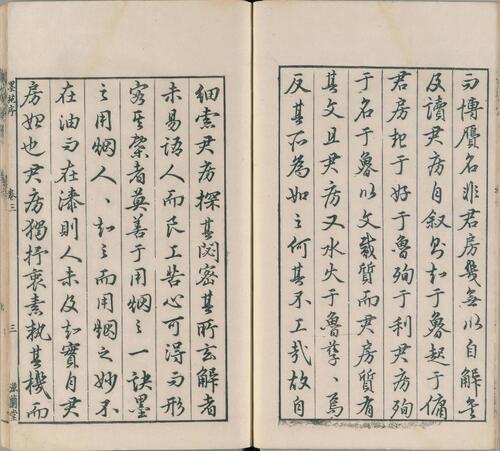 而博贋名非君房幾無以自解矣
及讀君房自叙則知于魯起于傭
君房起于好于魯殉于利君房殉
于名于魯以文蔵質而君房質有
其文且君房又水火于魯孽、焉
反其所為如之何其不工哉故自
細索君房探其閟密其所玄解者
未易語人而良工苦心可得而形
容其槩者莫善于用烟之一訣墨
之用烟人、知之而用烟之妙不
在油而在漆則人未及知實自君
房始也君房獨抒衷素執其機而
墨苑序
卷三
三
滋蘭堂